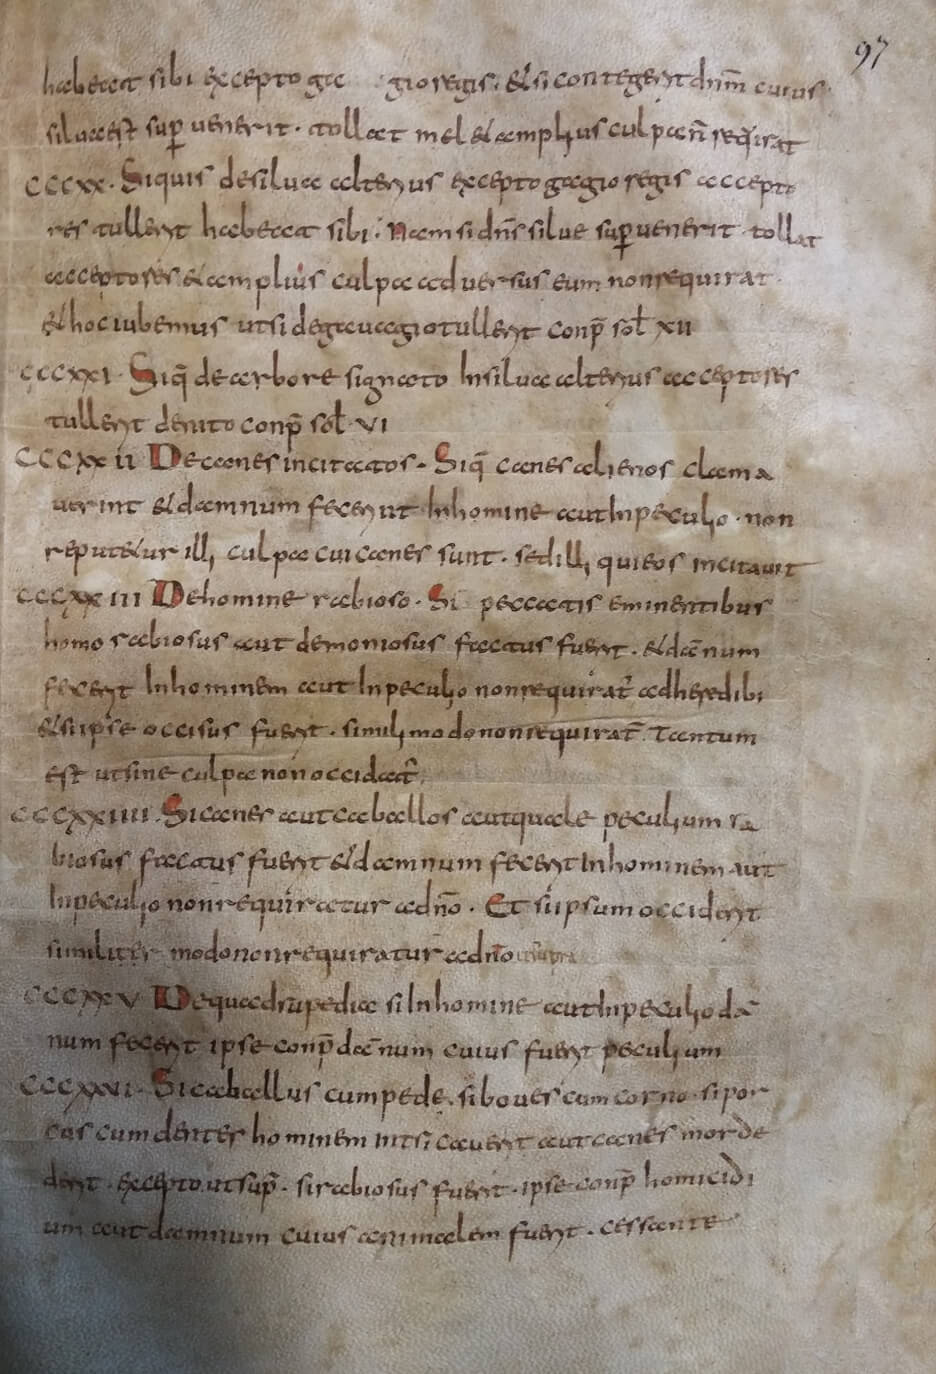 97
habeat sibi excepto ga gio regis. et si contegerit dn̄m cuius
silua est sup̱ uenerit. tollat mel et amplius culpa n̄ requirat
CCCXX. Siquis desilua alterius excepto gagio regis accepto
res tullerit habeat sibi. Nam si dn̄s silue sup̱uenerit tollat
acceptores et amplius culpa aduersus eum non requirat
et hoc iubemus ut si de gauuagio tullerit conp̄ sol XII
CCCXXI. Siq̄ de arbore signato In silua alterius acceptores
tullerit denuto conp̄ sol VI
CCCXXII De canes incitatos. Siq̄ canes alienos clama
uerint et damnum fecerint In homine aut In peculio. non
reputetur illi culpa cui canes sunt. sed illi qui eos incitauit
CCCXXIII De homine rabioso. Si peccatis eminentibus
homo rabiosus aut demoniosus factus fuerit. et dānum
fecerit In hominem aut In peculio non requirat̄ ad heredibi
et si ipse occisus fuerit. simili modo non requirat̄ Tantum
est ut sine culpa non occidat̄
CCCXXIIII. Si canes aut caballos aut quale peculium ra
biosus factus fuerit et damnum fecerit In hominem aut
In peculio non requiratur ad dn̄o. Et si ipsum occiderit
similiter modo non requiratur ad dn̄o
CCCXXV De quadrupedia si In homine aut In peculio dā
num fecerit ipse conp̄ dānum cuius fuerit peculium
CCCXXVI. Si caballus cum pede. si boues cum corno. si por
cus cum dentes hominem intricauerit aut canes morde
derit. excepto ut sup̄. si rabiosus fuerit. ipse conp̄ homicidi
um aut damnum cuius animalem fuerit. cessante